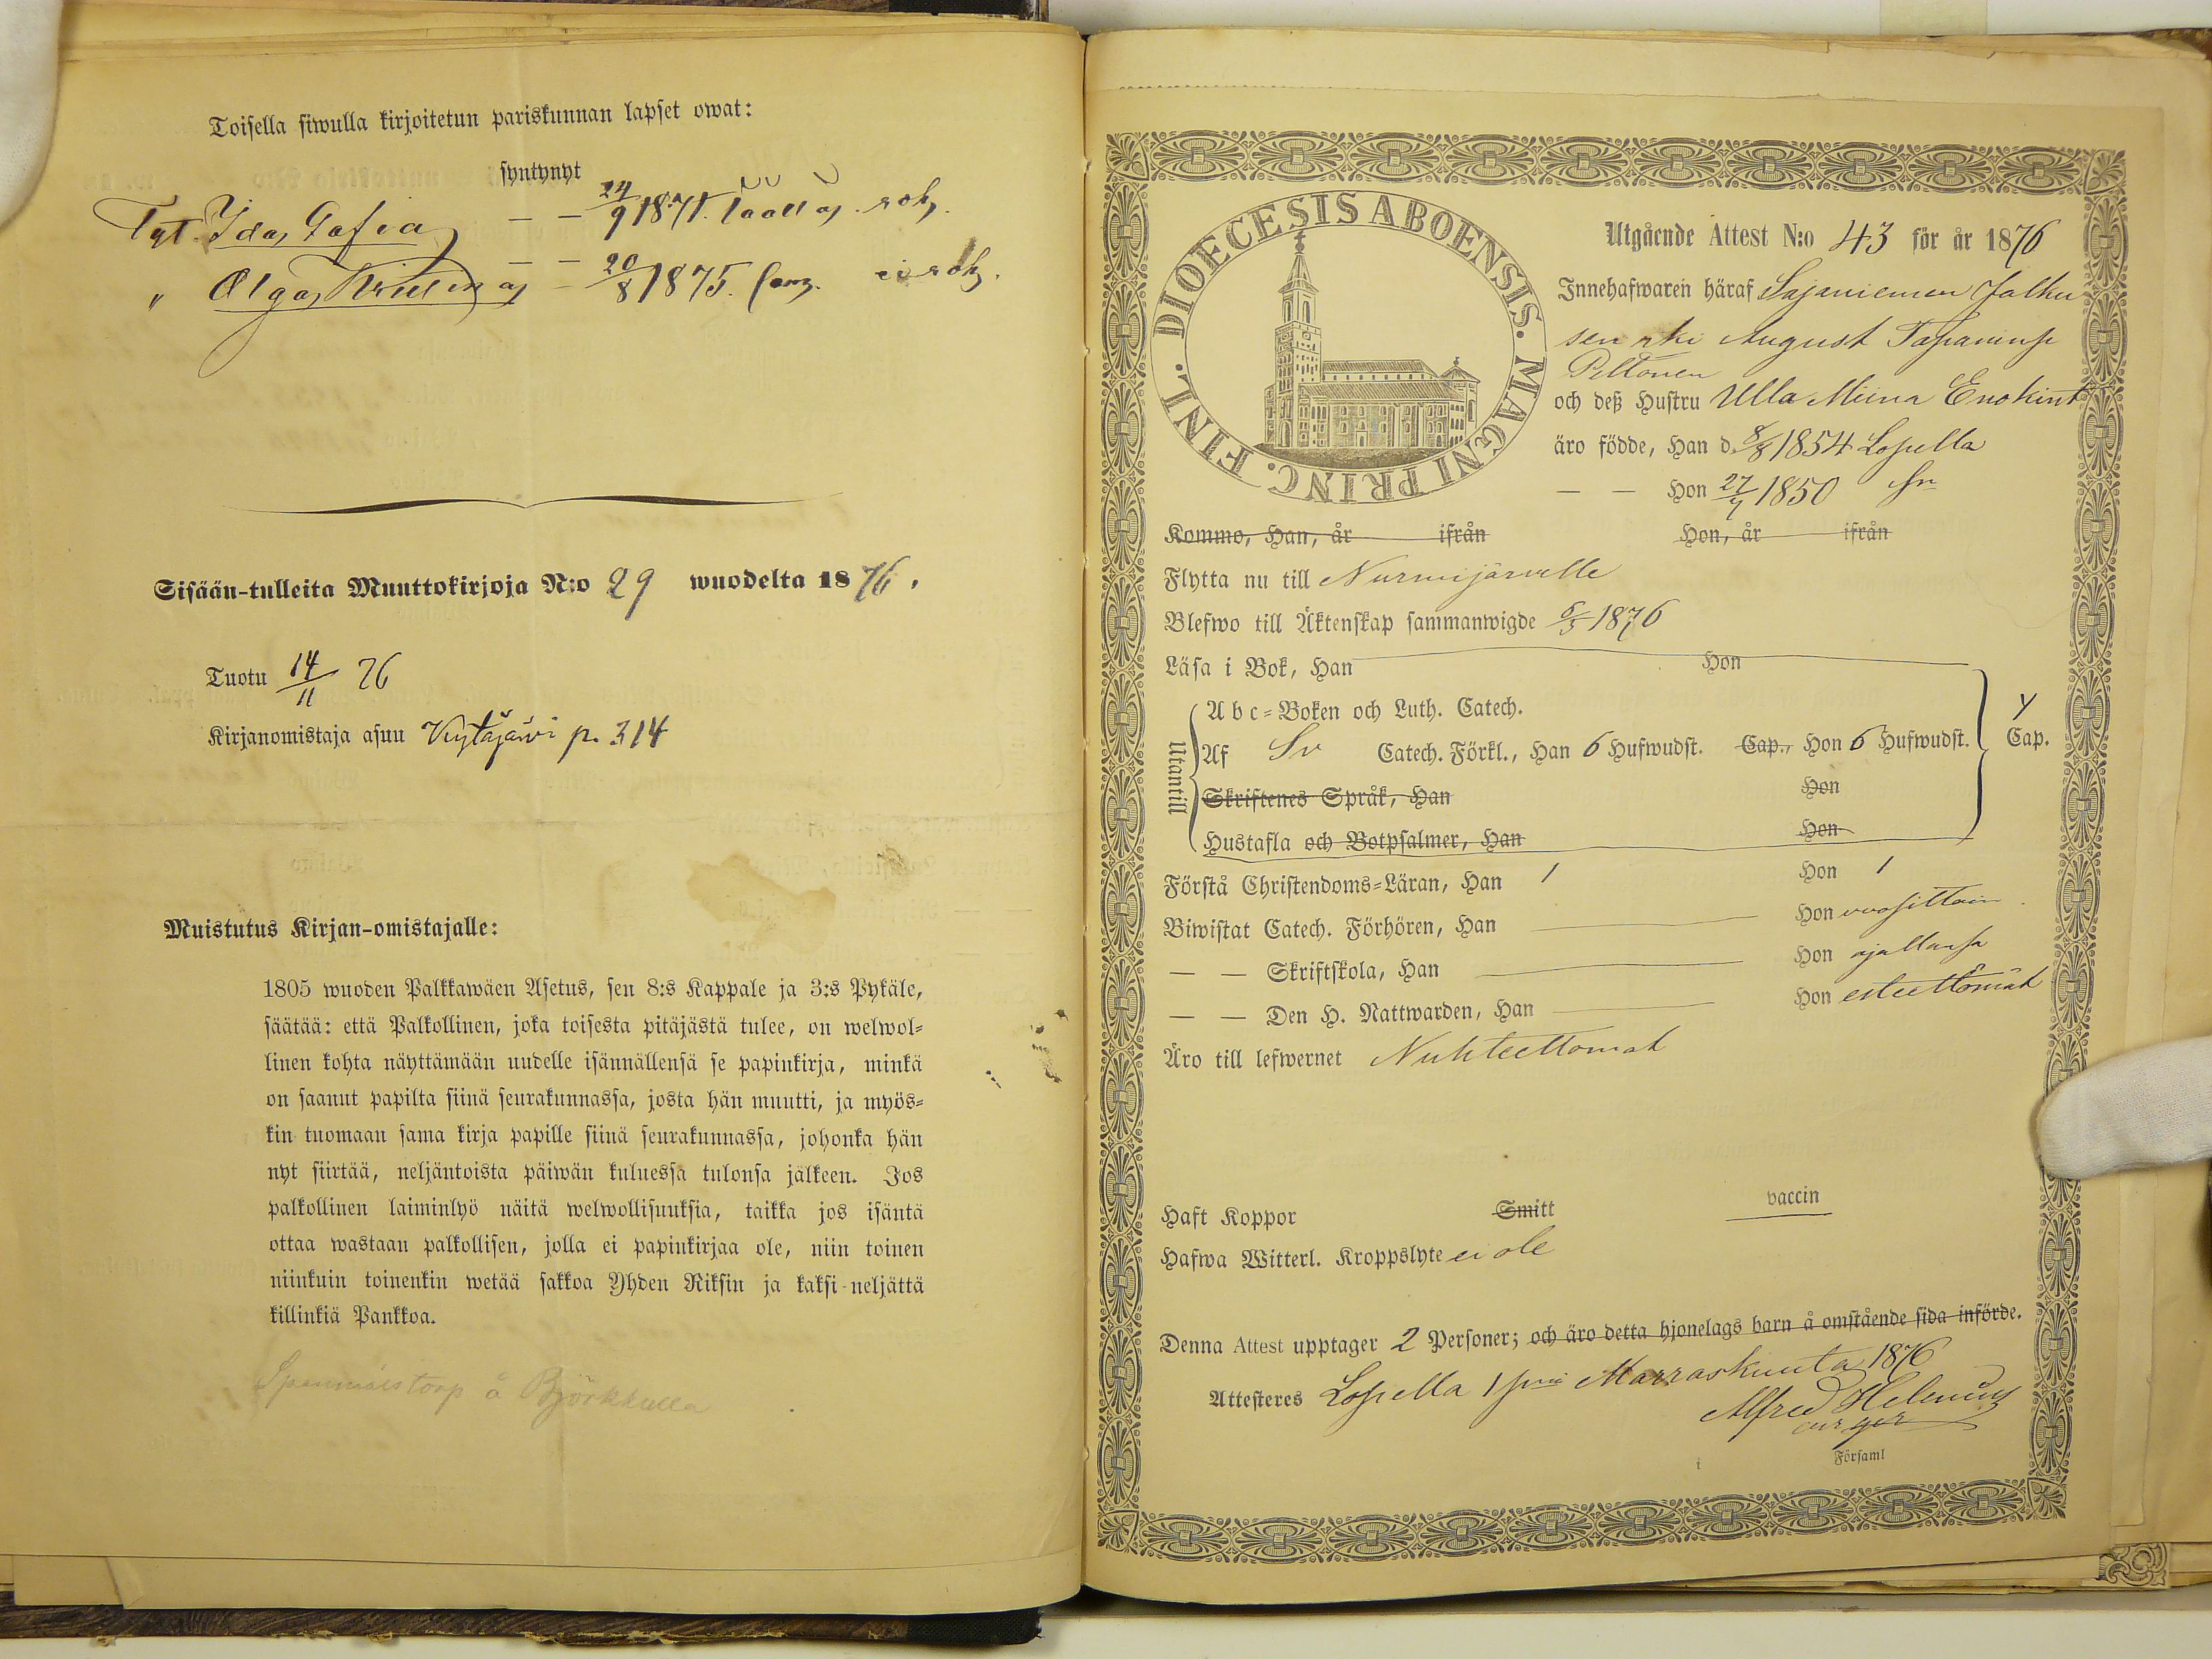 Toisella siwulla kirjoitetun pariskunnan lapset owat:
syntynyt
Tyt. Ida Sofia — — 24/9 1871. täällä. rok.
" Olga — — 20/8 1875. ei rok.
Sisään-tulleita Muuttokirjoja N:o 29 wuodelta 1876.
Tuotu 14/11 76
Kirjanomistaja asuu Kytäjärvi p. 314
Muistutus Kirjan-omistajalle:
1805 wuoden Palkkawäen Asetus, sen 8:s Kappale ja 3:s Pykäle,
säätää: että Palkollinen, joka toisesta pitäjästä tulee, on welwol=
linen kohta näyttämään uudelle isännällensä se papinkirja, minkä
on saanut papilta siinä seurakunnassa, josta hän muutti, ja myös=
kin tuomaan sama kirja papille siinä seurakunnassa, johonka hän
nyt siirtää, neljäntoista päiwän kuluessa tulonsa jälkeen. Jos
palkollinen laiminlyö näitä welwollisuuksia, taikka jos isäntä
ottaa wastaan palkollisen, jolla ei papinkirjaa ole, niin toinen
niinkuin toinenkin wetää sakkoa Yhden Riksin ja kaksi neljättä
killinkiä Pankkoa.
torp å Björkkulla
DIOECESIS ABOENSIS. MAGNI PRINC. FINL.
Utgående Attest N:o 43 för år 1876
Innehafwaren häraf Sajaniemen Jalku
sen rki August Tapaninp
Peltonen
och deß Hustru Ulla Miina Enokint
äro födde, Han d. 8/8 1854 Lopella
— — Hon 27/7 1850 sn
Kommo, Han, år ifrån Hon, år ifrån
Flytta nu till Nurmijärwelle
Blefwo till Äktenskap sammanwigde 6/5 1876
Läsa i Bok, Han Hon
Utantill
A b c=Boken och Luth. Catech.
Af Sv Catech. Förkl., Han 6 Hufwudst. Cap., Hon 6 Hufwudst. Cap.
Skriftenes Språk, Han Hon
Hustafla och Botpsalmer, Han Hon
Förstå Christendoms=Läran, Han 1 Hon 1
Biwistat Catech. Förhören, Han Hon vuosittain.
— — Skriftskola, Han Hon ajallansa
— — Den H. Nattwarden, Han Hon esteettömät
Äro till lefwernet Nuhteettomat
Haft Koppor Smitt vaccin
Hafwa Witterl. Kroppslyte ei ole
Denna Attest upptager 2 Personer; och äro detta hjonelags barn å omstående sida införde.
Attesteres Lopella 1 pnä Marraskuuta 1876
Alfred Helenius
i Församl